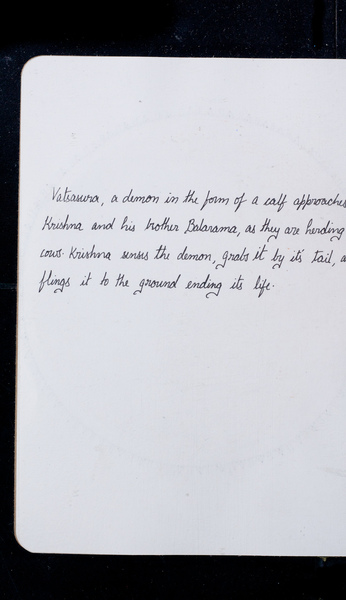 Vatsasura, a demon in the form of a calf approaches
Krishna and his brother Balarama, as they are herding
cows. Krishna senses the demon, grabs it by it's tail, a
flings it to the ground ending its life.